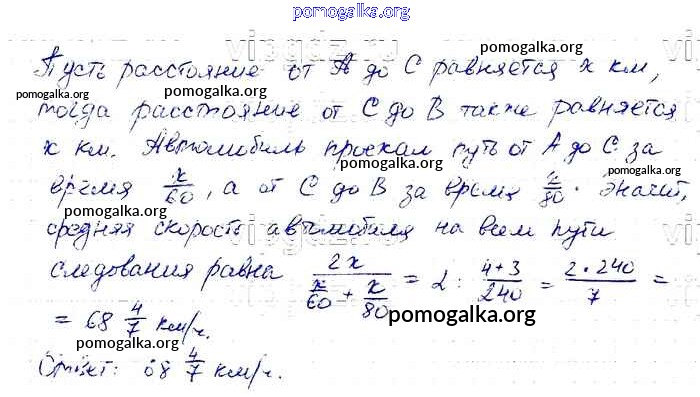 pomogalka.org
Пусть расстояние от А до С равняется x км,
pomogalka.org
pomogalka.org
pomogalka.org
тогда расстояние от С до В также равняется
x км. Автомобиль проехал путь от А до С за
pomogalka.org
время x/60, а от С до В за время x/80. Значит,
pomogalka.org
pomogalka.org
средняя скорость автомобиля на всем пути
следования равна 2x / (x/60 + x/80) = 2 : (4+3)/240 = (2·240)/7 =
pomogalka.org
= 68 4/7 км/ч.
pomogalka.org
Ответ: 68 4/7 км/ч.